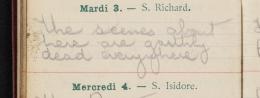 Mardi 3. — S. Richard.
The scenes about
here are ghastly
dead everywhere
Mercredi 4. — S. Isidore.